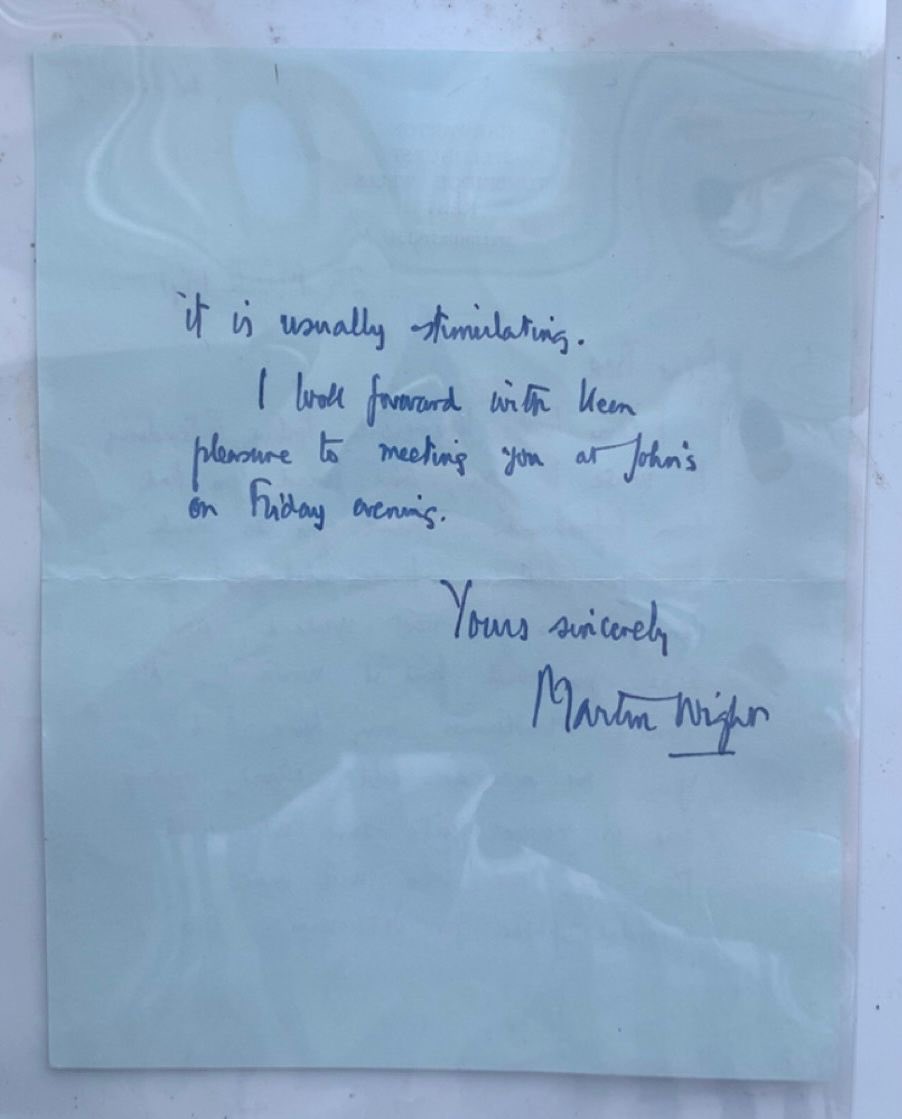 it is usually stimulating.
I look forward with keen
pleasure to meeting you at John's
on Friday evening.
Yours sincerely
Martin Wight